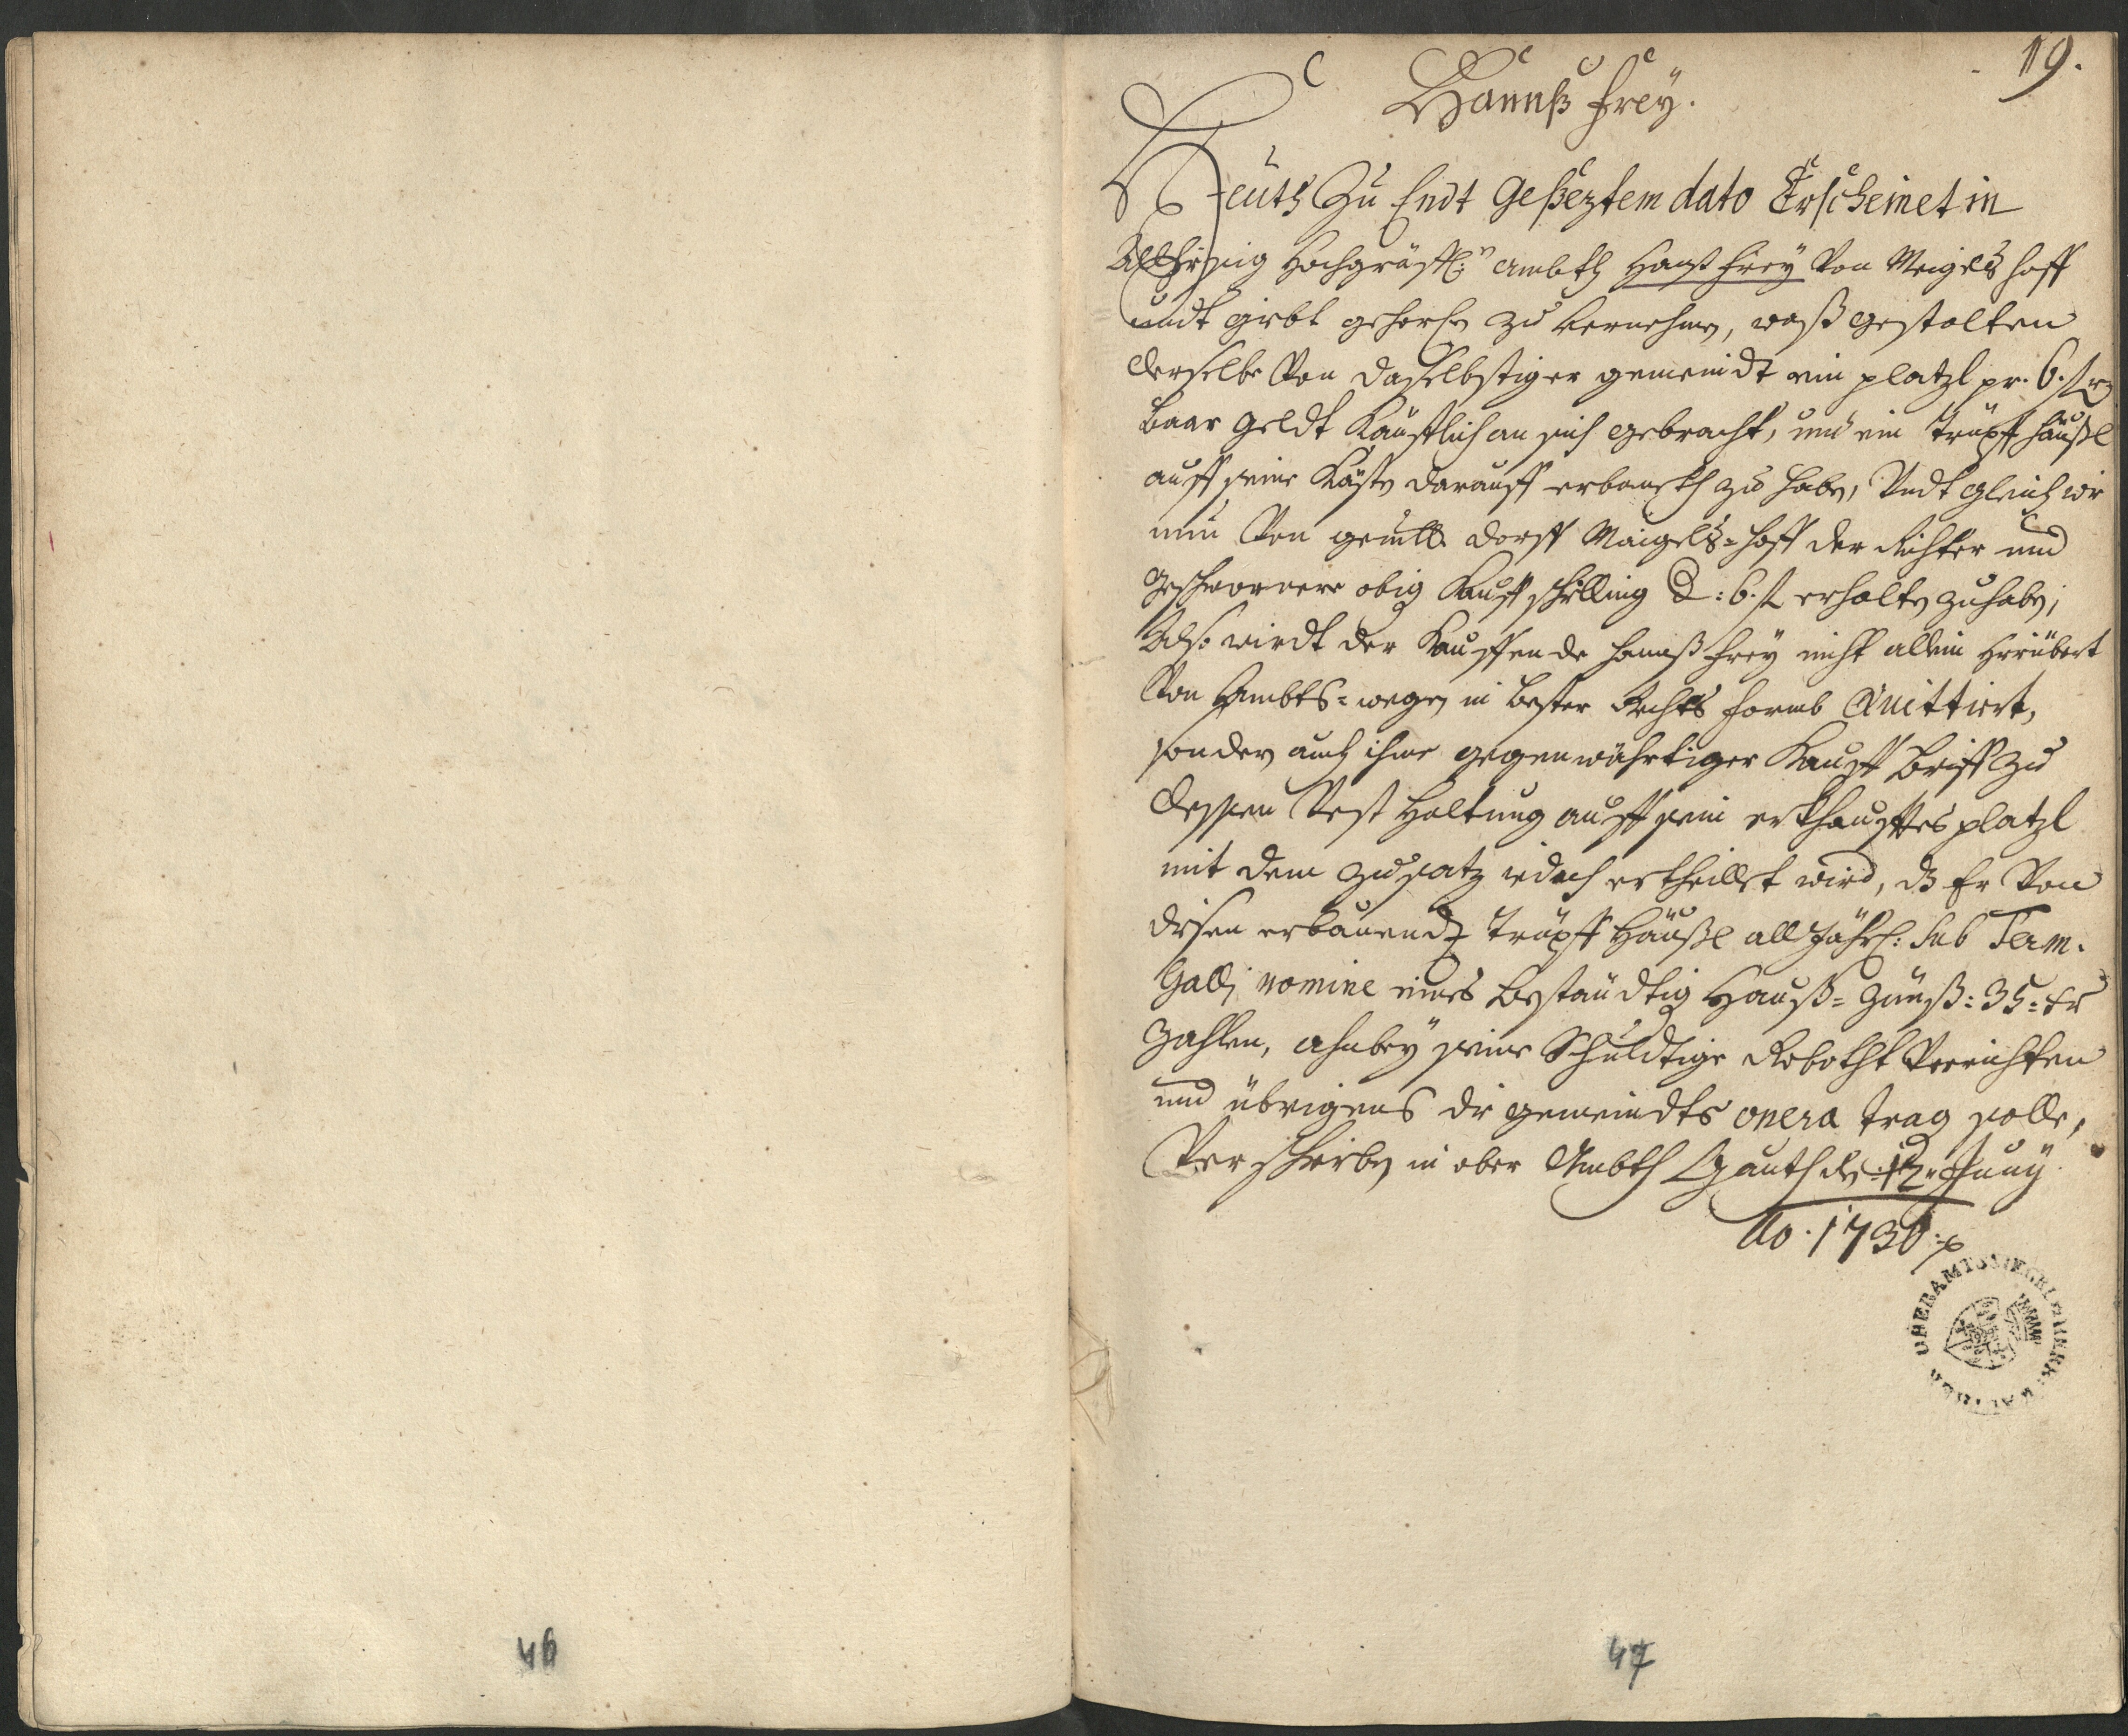 19.
Hannß Frey.
Heuth Zu Endt Geßeztem dato Erscheinet in
Allhiesig Hochgräffl:n Ambth Hanß Frey Von Meigelshoff
undt giebt gehorsn zu vernehmen, waß gestalten
derselbe Von daselbstiger gemeindt ein platzl pr. 6. fl
baar geldt Käufflich an sich gebracht, und ein Trüpff häußl
auff seine Kösten darauff erbaueth zu haben, Undt gleich wie
nun Von gemlt. dorff Maigels-hoff der Richter und
geschwornere obig Kauffschilling d: 6. fl erhalten zu haben;
Also wirdt der Kauffende Hannß Frey nicht allein hierüber
Von Ambts-wegen in bester Rechts formb Quittiert,
sondern auch ihme gegenwährtiger Kauff brieff zu
dessen Vest haltung auff sein erkhaufftes platzl
mit dem zusatz iedoch ertheillet wird, dß Er Von
disen erbauendt Trüpff häußl all Jährl: sub Term.
Galli nomine eines beständtig Hauß-Zünß: 35: kr
Zahlen, ahnbey seine Schuldtige Robotht Verrichten
und übrigens die gemeindts onera trag solle,
Verschrieben in ober Ambth Gauth den 12. Juny
Ao. 1730.
OBERAMTSSIEGEL
46
47